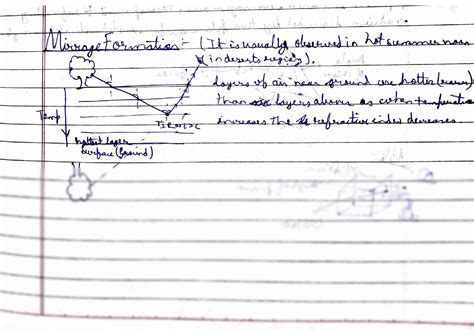 Mirage Formation:- (It is usually observed in hot summer noon
in deserts regions).
layers of air near ground are hotter (warm)
than layers above as when temperature
increases the refractive index decreases.
Temp
hottest layer
surface (Ground)